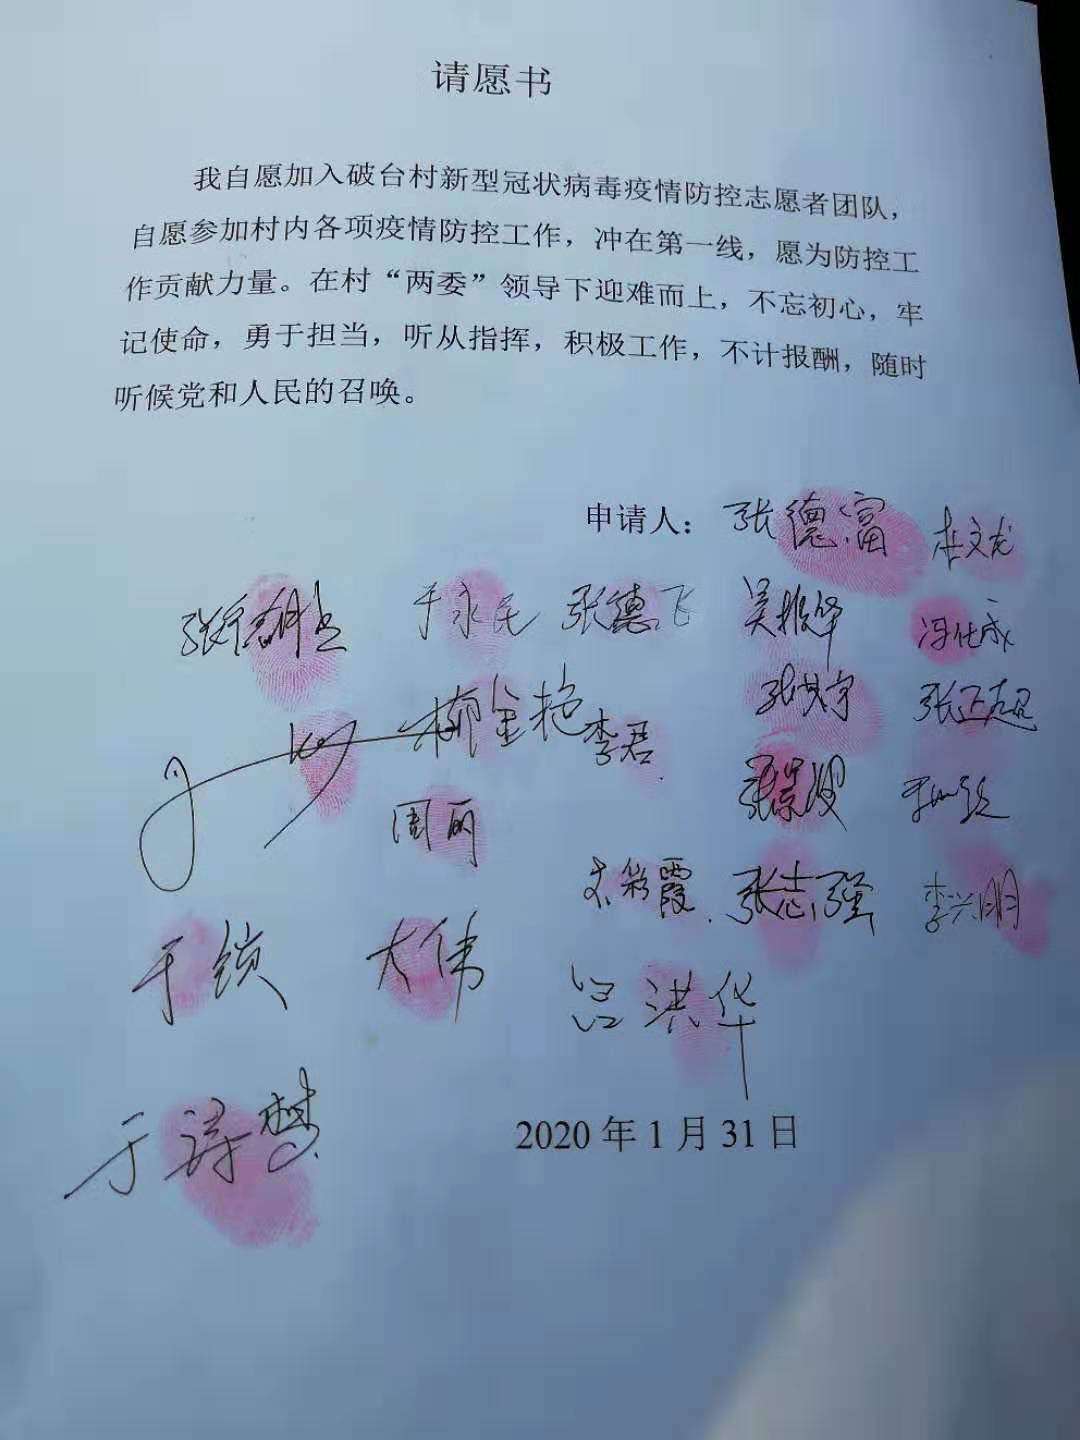 请愿书
我自愿加入破台村新型冠状病毒疫情防控志愿者团队，
自愿参加村内各项疫情防控工作，冲在第一线，愿为防控工
作贡献力量。在村“两委”领导下迎难而上，不忘初心，牢
记使命，勇于担当，听从指挥，积极工作，不计报酬，随时
听候党和人民的召唤。
申请人：张德富 李文龙
于永民 张德飞 吴振华 冯仕成
张洪宇 张正超
柳金艳 李君
周丽 张景波
彩霞 张志强 李兴明
于锁 大伟
吕洪华
于诗梦
2020年1月31日